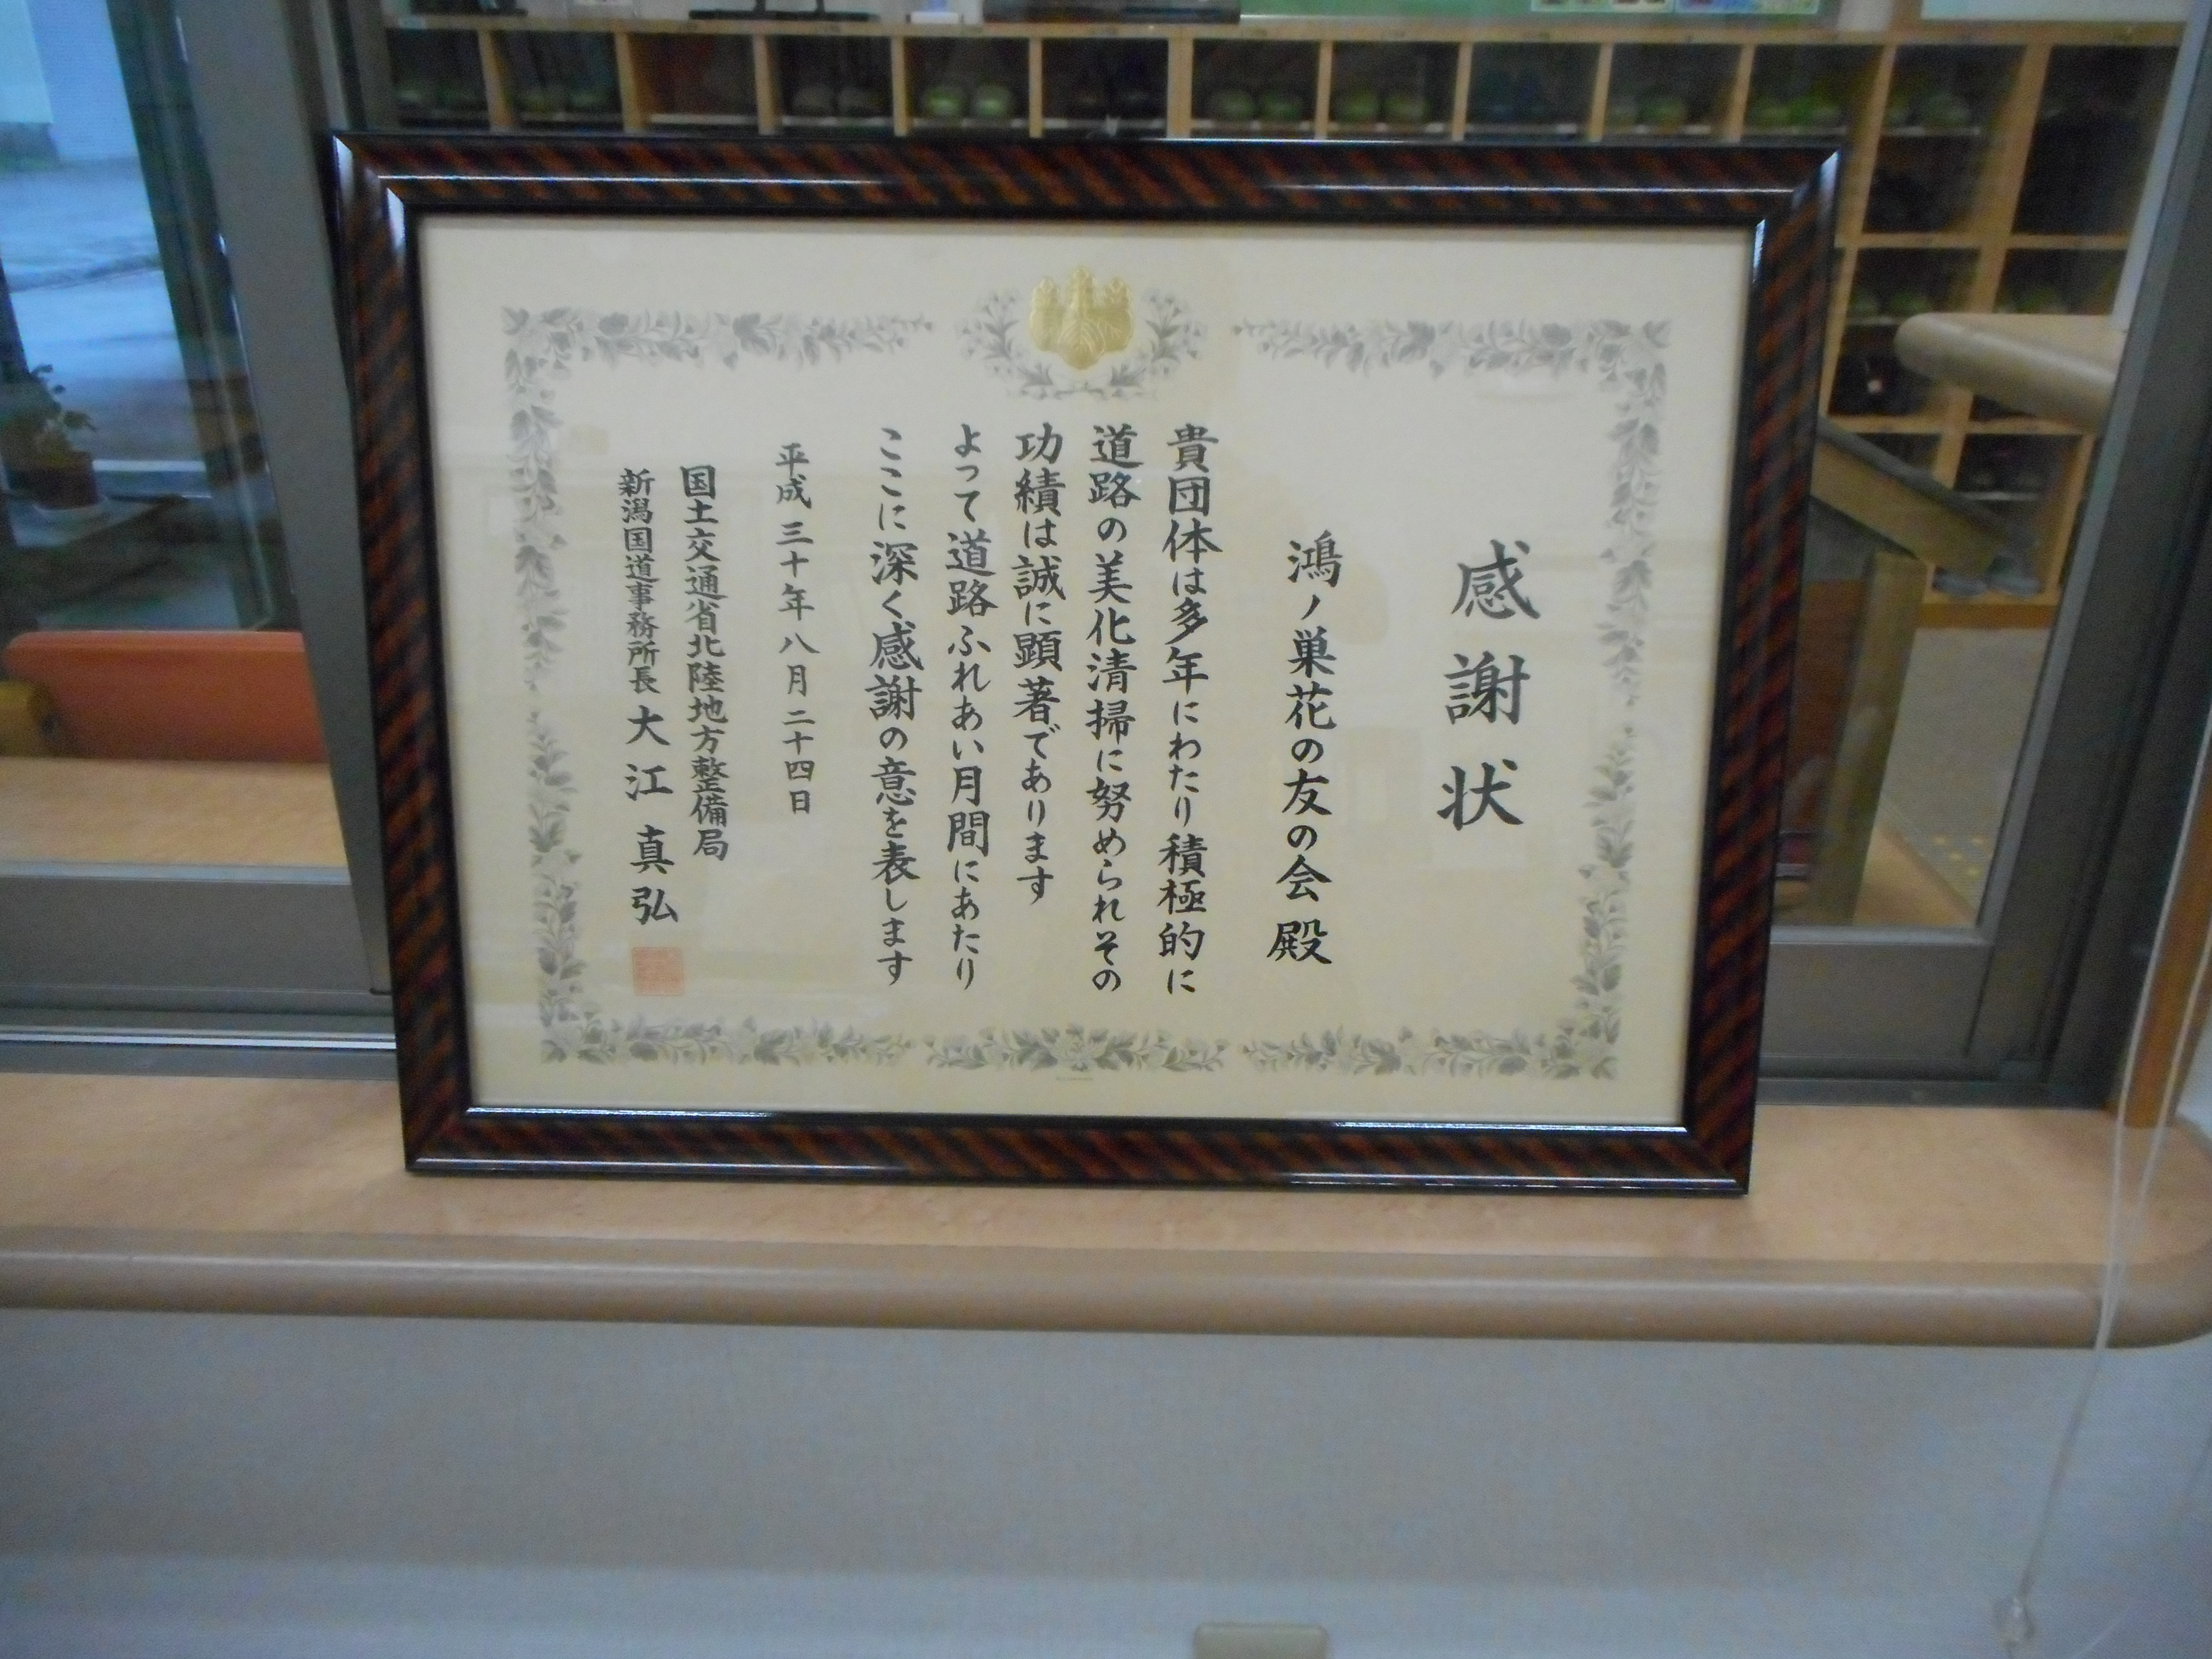 感謝状
鴻ノ巣花の友の会殿
貴団体は多年にわたり積極的に
道路の美化清掃に努められその
功績は誠に顕著であります
よって道路ふれあい月間にあたり
ここに深く感謝の意を表します
平成三十年八月二十四日
国土交通省北陸地方整備局
新潟国道事務所長 大江真弘